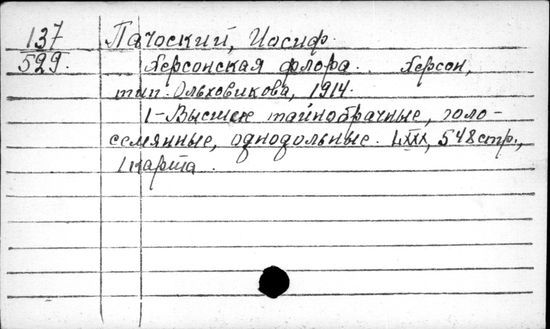 137 Пачоский, Иосиф.
529. Херсонская флора. Херсон,
тип. Ольховикова, 1914.
1-Высшие тайнобрачные, голо-
семянные, однодольные. LXXX, 548 стр.,
1 карта.